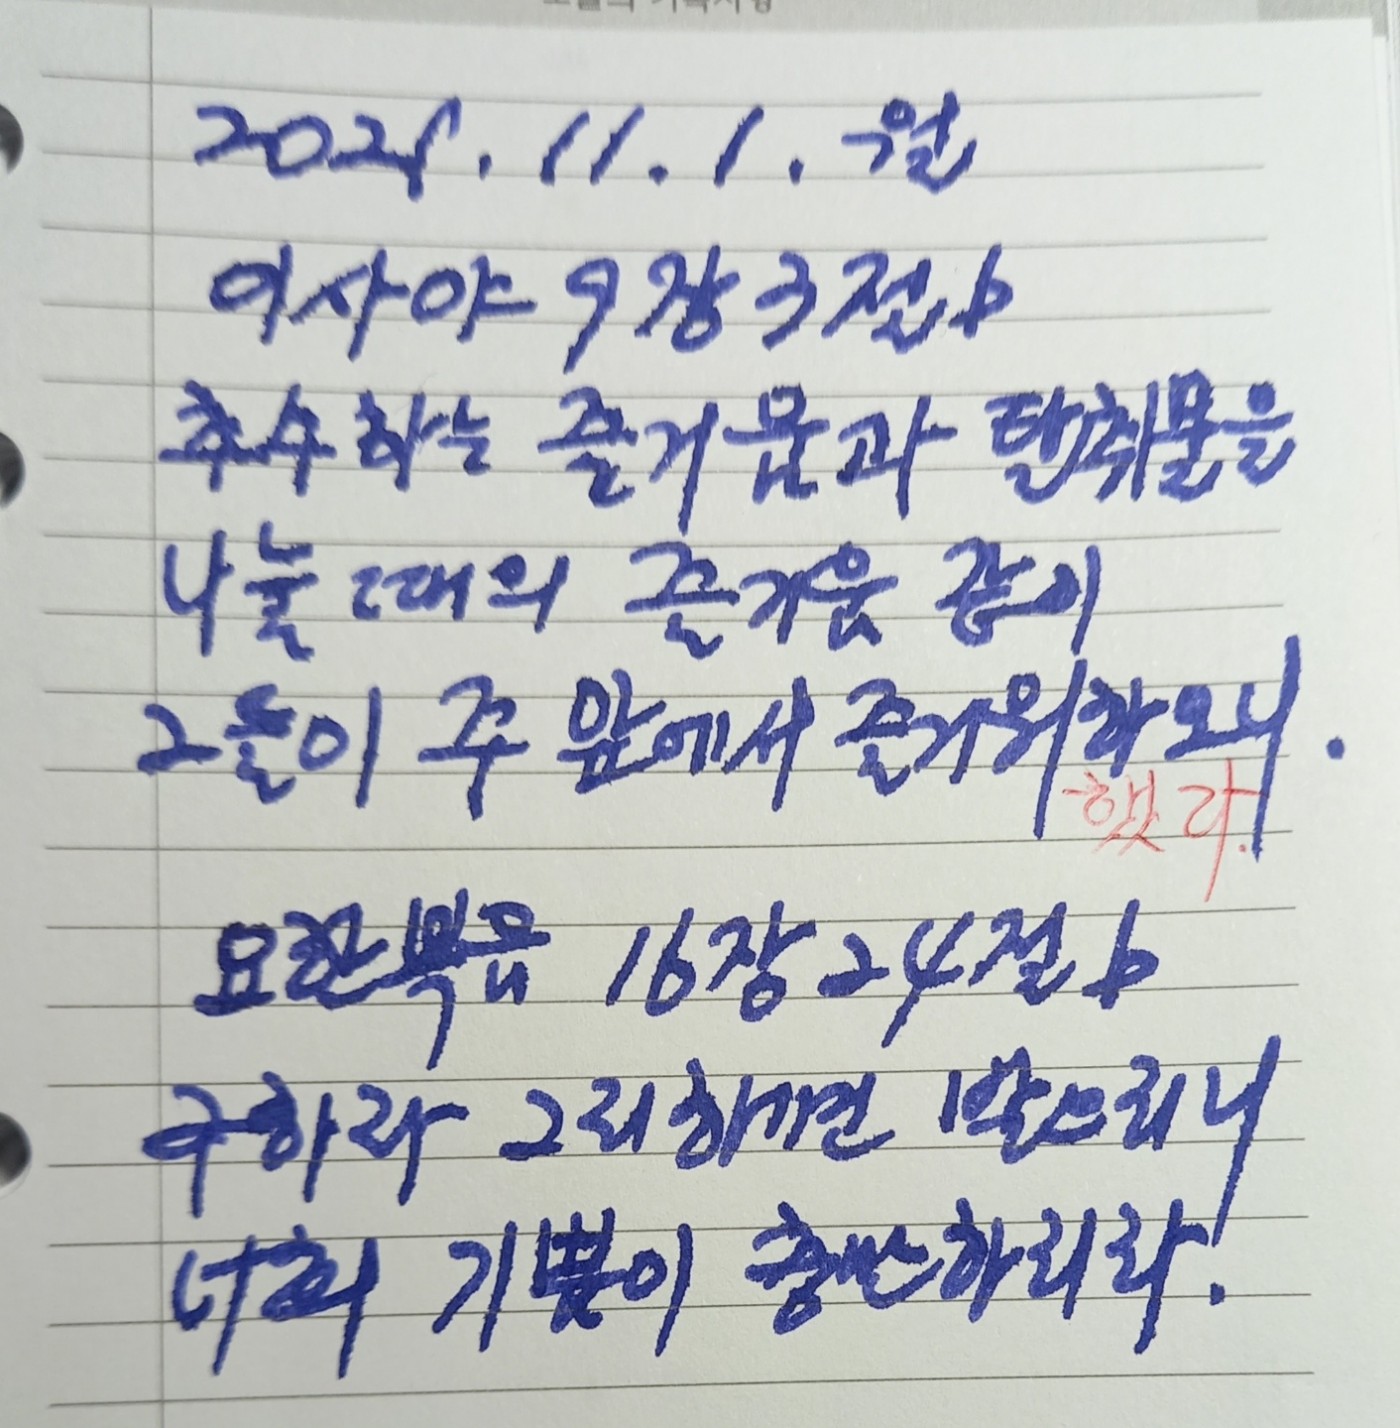 2021. 11. 1. 월
이사야 9장 3절b
추수하는 즐거움과 탈취물을
나눌 때의 즐거움 같이
그들이 주 앞에서 즐거워하오니.
했라.
요한복음 16장 24절b
구하라 그리하면 받으리니
너희 기쁨이 충만하리라.